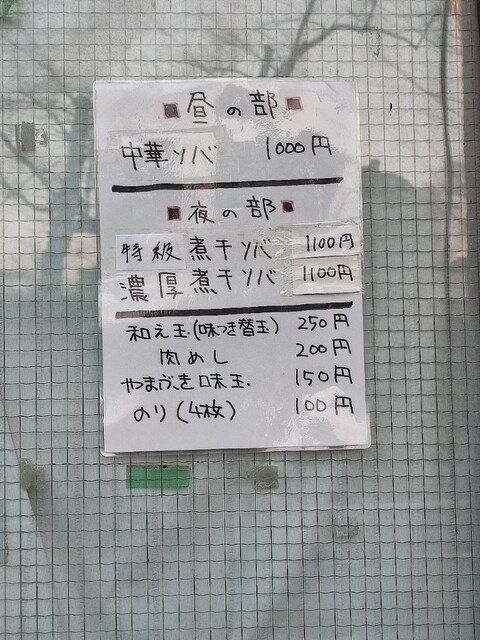 ■昼の部■
中華ソバ 1000円
■夜の部■
特級煮干ソバ 1100円
濃厚煮干ソバ 1100円
和え玉(味つき替玉) 250円
肉めし 200円
やまぶき味玉 150円
のり(4枚) 100円